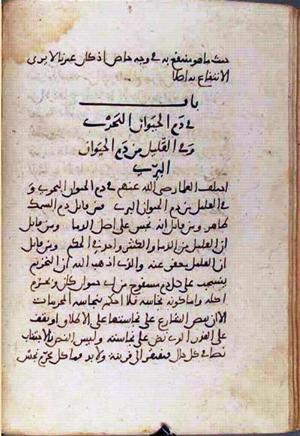 حيث ما هو منتفع به في وجه خاص اذ كل عيز بالا يرى
الانتفاع به اصلا
باب
في دم الحيوان البحرى
وفي القليل من دم الحيوان
البرى
اختلف العلما رضى الله عنهم في دم الحيوان البحرى و
في القليل من دم الحيوان البرى فمن قائل دم السمك
طاهر ومن قائل انه نجس على اصل الدما ومن قائل
ان القليل من الدما والكثير واحد في الحكم ومن قائل
ان القليل معفو عنه والذى اذهب اليه ان التحريم
ينسحب على كل دم مسفوح من اى حيوان كان ويحرم
اكله واما كونه نجاسة فلا احكم بنجاسة المحرمات
الا ان ينص الشارع على نجاستها على الاطلاق او يقف
على القدر الذى نص على نجاسته وليس النص بالاجتناب
نصا في كل حال فيفتقر الى قرينة ولا بد فما كل محرم نجس